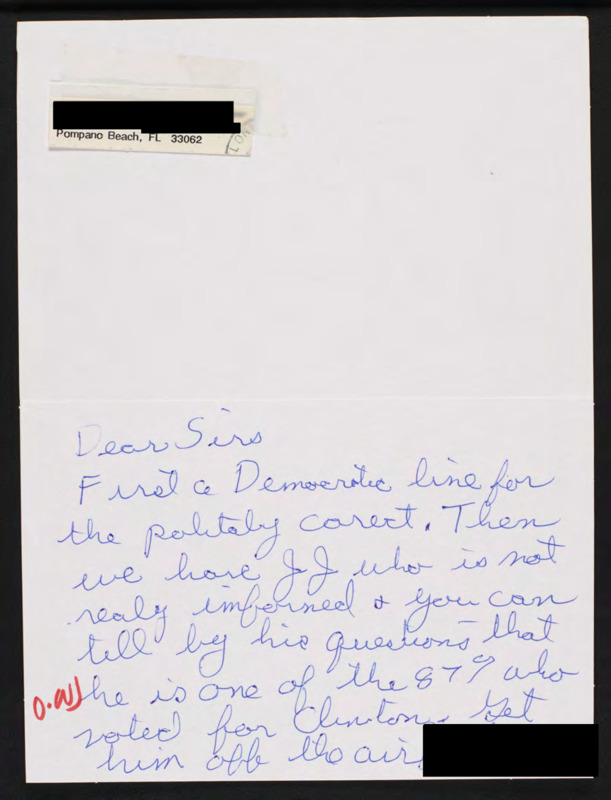 Pompano Beach, FL 33062
Dear Sirs
First a Democratic line for
the politaly carect. Then
we have JJ who is not
realy imformed & you can
tell by his questions that
he is one of the 87% who
voted for Clinton. Get
him off the air.